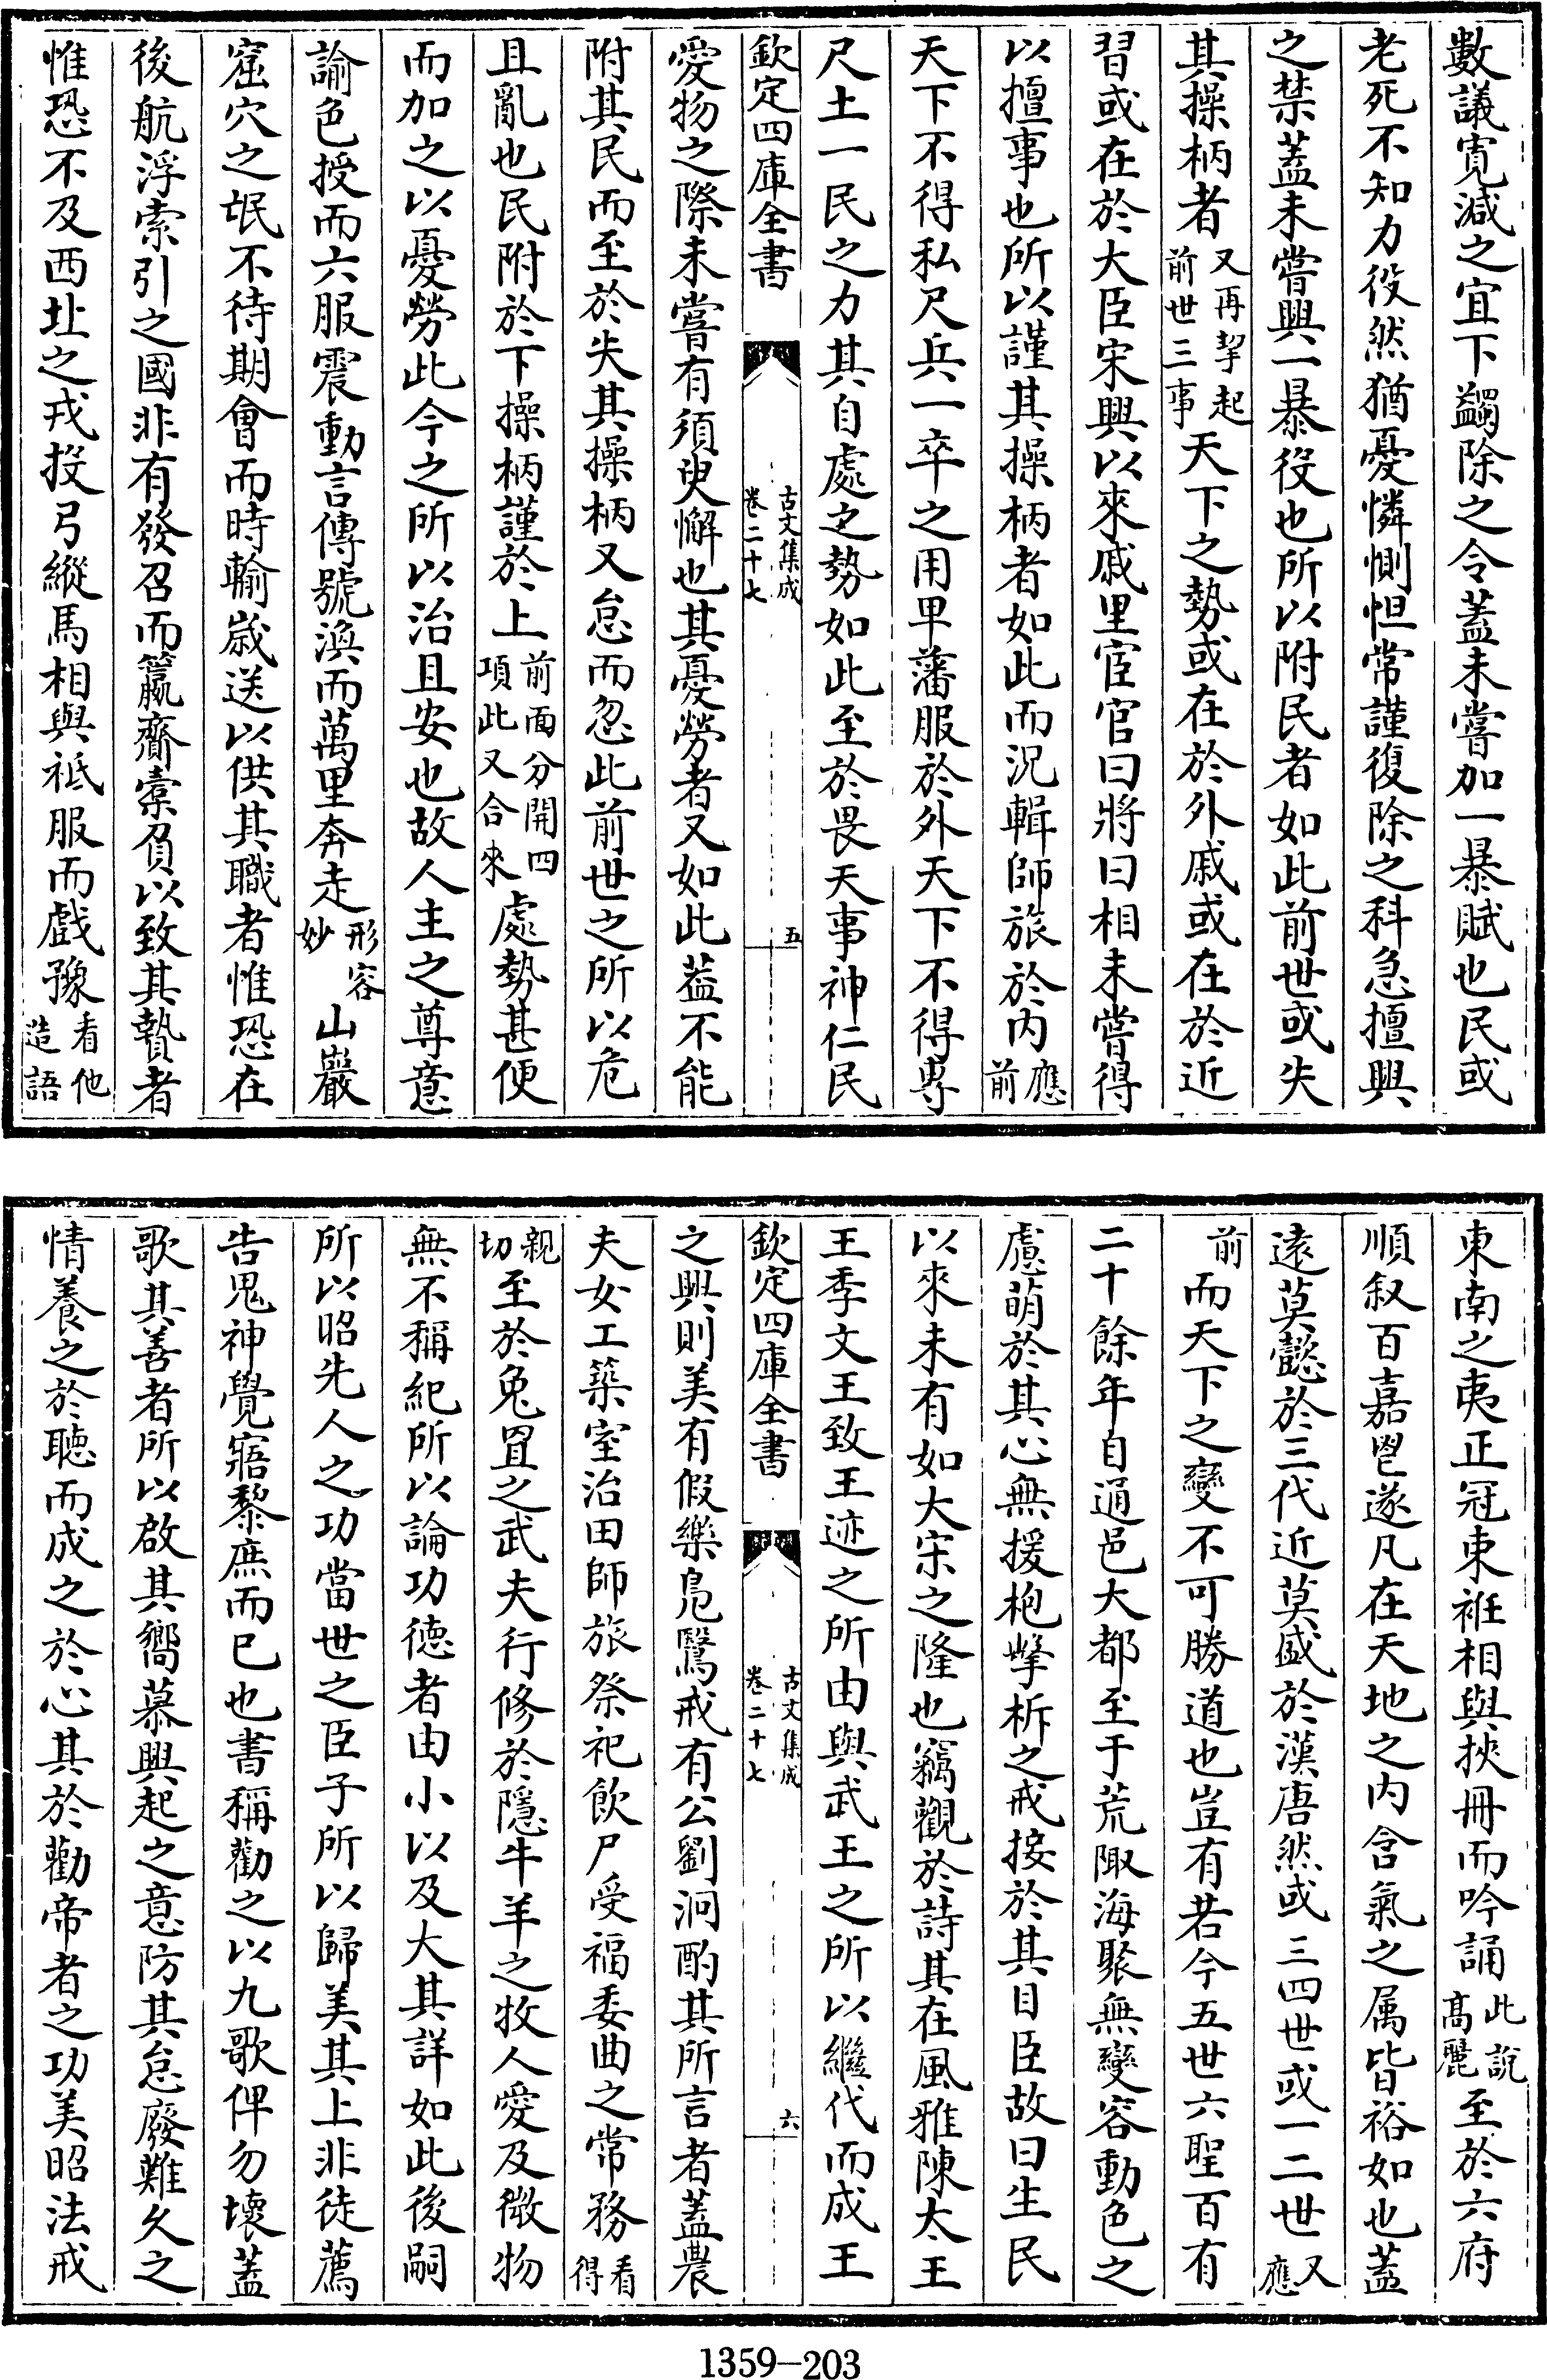 數議寛減之宜下蠲除之令蓋未嘗加一暴賦也民或
老死不知力役然猶憂憐惻怛常謹復除之科急擅興
之禁蓋未嘗興一暴役也所以附民者如此前世或失
其操柄者又再挈起前世三事天下之勢或在於外戚或在於近
習或在於大臣宋興以來戚里宦官曰將曰相未嘗得
以擅事也所以謹其操柄者如此而況輯師旅於内應前
天下不得私尺兵一卒之用卑藩服於外天下不得專
尺土一民之力其自處之勢如此至於畏天事神仁民
欽定四庫全書 古文集成 卷二十七 五
愛物之際未嘗有須臾懈也其憂勞者又如此蓋不能
附其民而至於失其操柄又怠而忽此前世之所以危
且亂也民附於下操柄謹於上前面分開四項此又合來處勢甚便
而加之以憂勞此今之所以治且安也故人主之尊意
諭色授而六服震動言傳號渙而萬里奔走形容妙山巖
窟穴之氓不待期會而時輸嵗送以供其職者惟恐在
後航浮索引之國非有發召而籯齎槖負以致其贄者
惟恐不及西北之戎投弓縱馬相與袨服而戲豫看他造語
東南之夷正冠束袵相與挾冊而吟誦此說髙麗至於六府
順叙百嘉鬯遂凡在天地之内含氣之属皆裕如也蓋
遠莫懿於三代近莫盛於漢唐然或三四世或一二世又應
前而天下之變不可勝道也豈有若今五世六聖百有
二十餘年自通邑大都至于荒陬海聚無變容動色之
慮萌於其心無援枹擊柝之戒接於其目臣故曰生民
以來未有如大宋之隆也竊觀於詩其在風雅陳太王
王季文王致王迹之所由與武王之所以繼代而成王
欽定四庫全書 古文集成 卷二十七 六
之興則美有假樂鳬鷖戒有公劉泂酌其所言者蓋農
夫女工築室治田師旅祭祀飲尸受福委曲之常務看得
親切至於兔罝之武夫行修於隱牛羊之牧人愛及微物
無不稱紀所以論功徳者由小以及大其詳如此後嗣
所以昭先人之功當世之臣子所以歸美其上非徒薦
告鬼神覺寤黎庶而已也書稱勸之以九歌俾勿壞蓋
歌其善者所以啟其嚮慕興起之意防其怠廢難久之
情養之於聽而成之於心其於勸帝者之功美昭法戒
1359—203